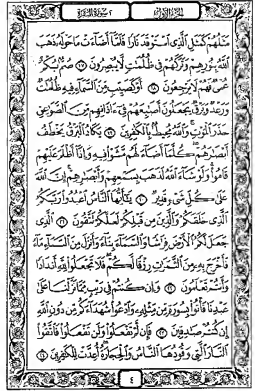 الجزء الأول ٢ سورة البقرة
مثلهم كمثل الذي استوقد نارا فلما أضاءت ما حوله ذهب
الله بنورهم وتركهم في ظلمت لا يبصرون ١٧ صم بكم
عمى فهم لا يرجعون ١٨ أو كصيب من السماء فيه ظلمت
ورعد وبرق يجعلون أصبعهم في ءاذانهم من الصوعق
حذر الموت والله محيط بالكفرين ١٩ يكاد البرق يخطف
أبصرهم كلما أضاء لهم مشوا فيه وإذا أظلم عليهم
قاموا ولو شاء الله لذهب بسمعهم وأبصرهم إن الله
على كل شىء قدير ٢٠ يأيها الناس اعبدوا ربكم
الذى خلقكم والذين من قبلكم لعلكم تتقون ٢١ الذى
جعل لكم الأرض فرشا والسماء بناء وأنزل من السماء ماء
فأخرج به من الثمرت رزقا لكم فلا تجعلوا لله أندادا
وأنتم تعلمون ٢٢ وإن كنتم في ريب مما نزلنا على
عبدنا فأتوا بسورة من مثله وادعوا شهداءكم من دون الله
إن كنتم صدقين ٢٣ فإن لم تفعلوا ولن تفعلوا فاتقوا
النار التى وقودها الناس والحجارة أعدت للكفرين ٢٤
٤